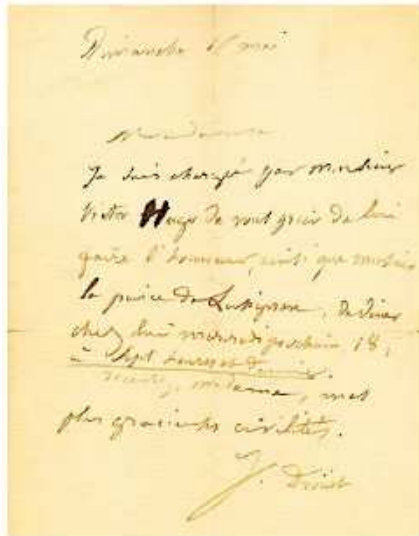 Dimanche 16 mai
Madame
Je suis chargée par monsieur
Victor Hugo de vous prier de lui
faire l'honneur, ainsi que monsieur
le prince de Lusignan, de dîner
chez lui mardi prochain 18,
à sept heures et demie.
Recevez, madame, mes
plus gracieuses civilités.
J. Drouet